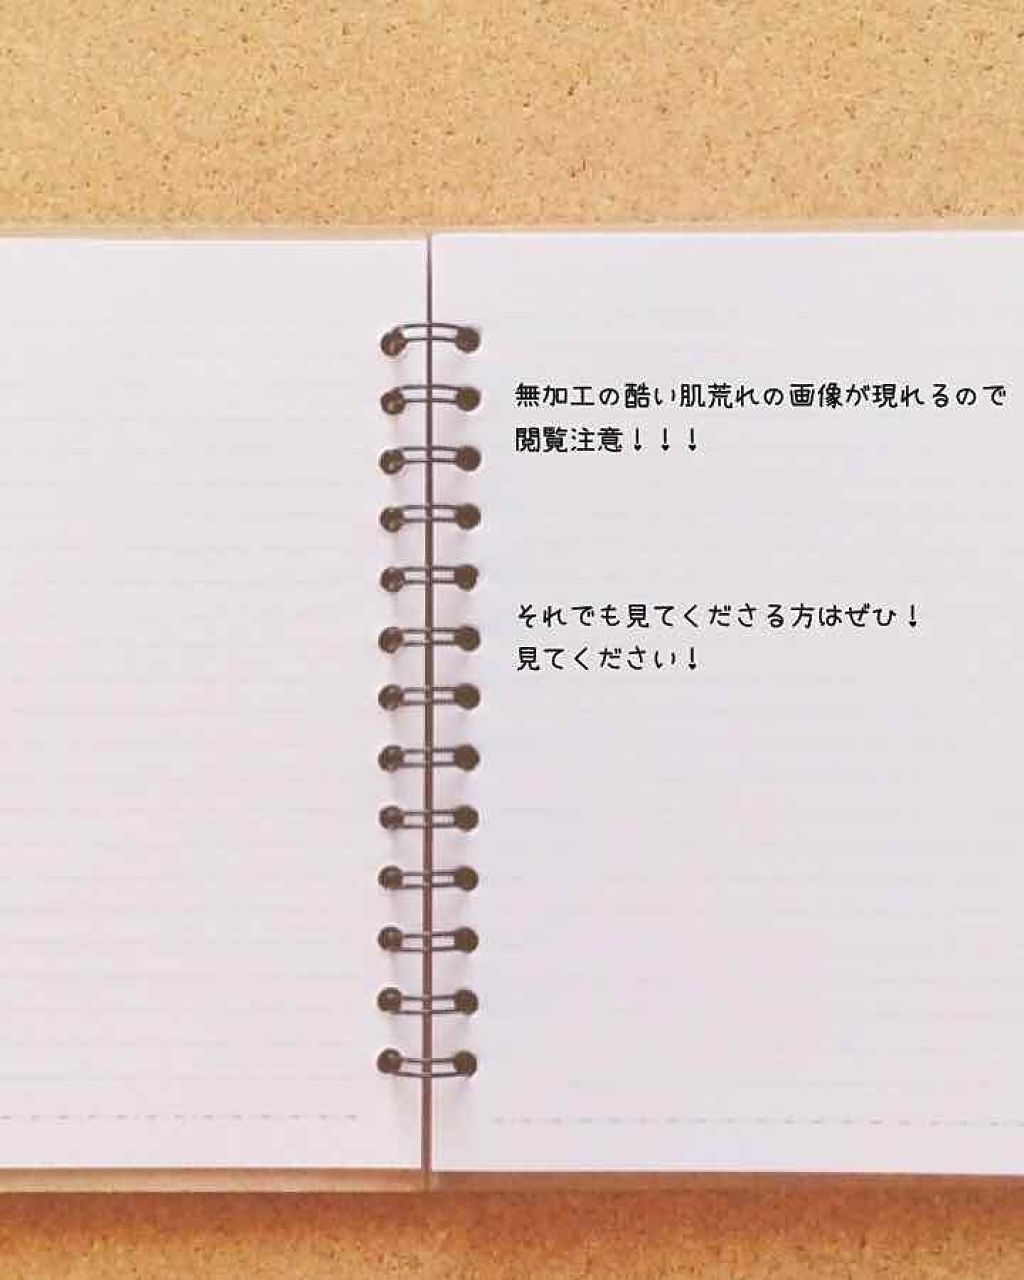 無加工の酷い肌荒れの画像が現れるので
閲覧注意！！！
それでも見てくださる方はぜひ！
見てください！